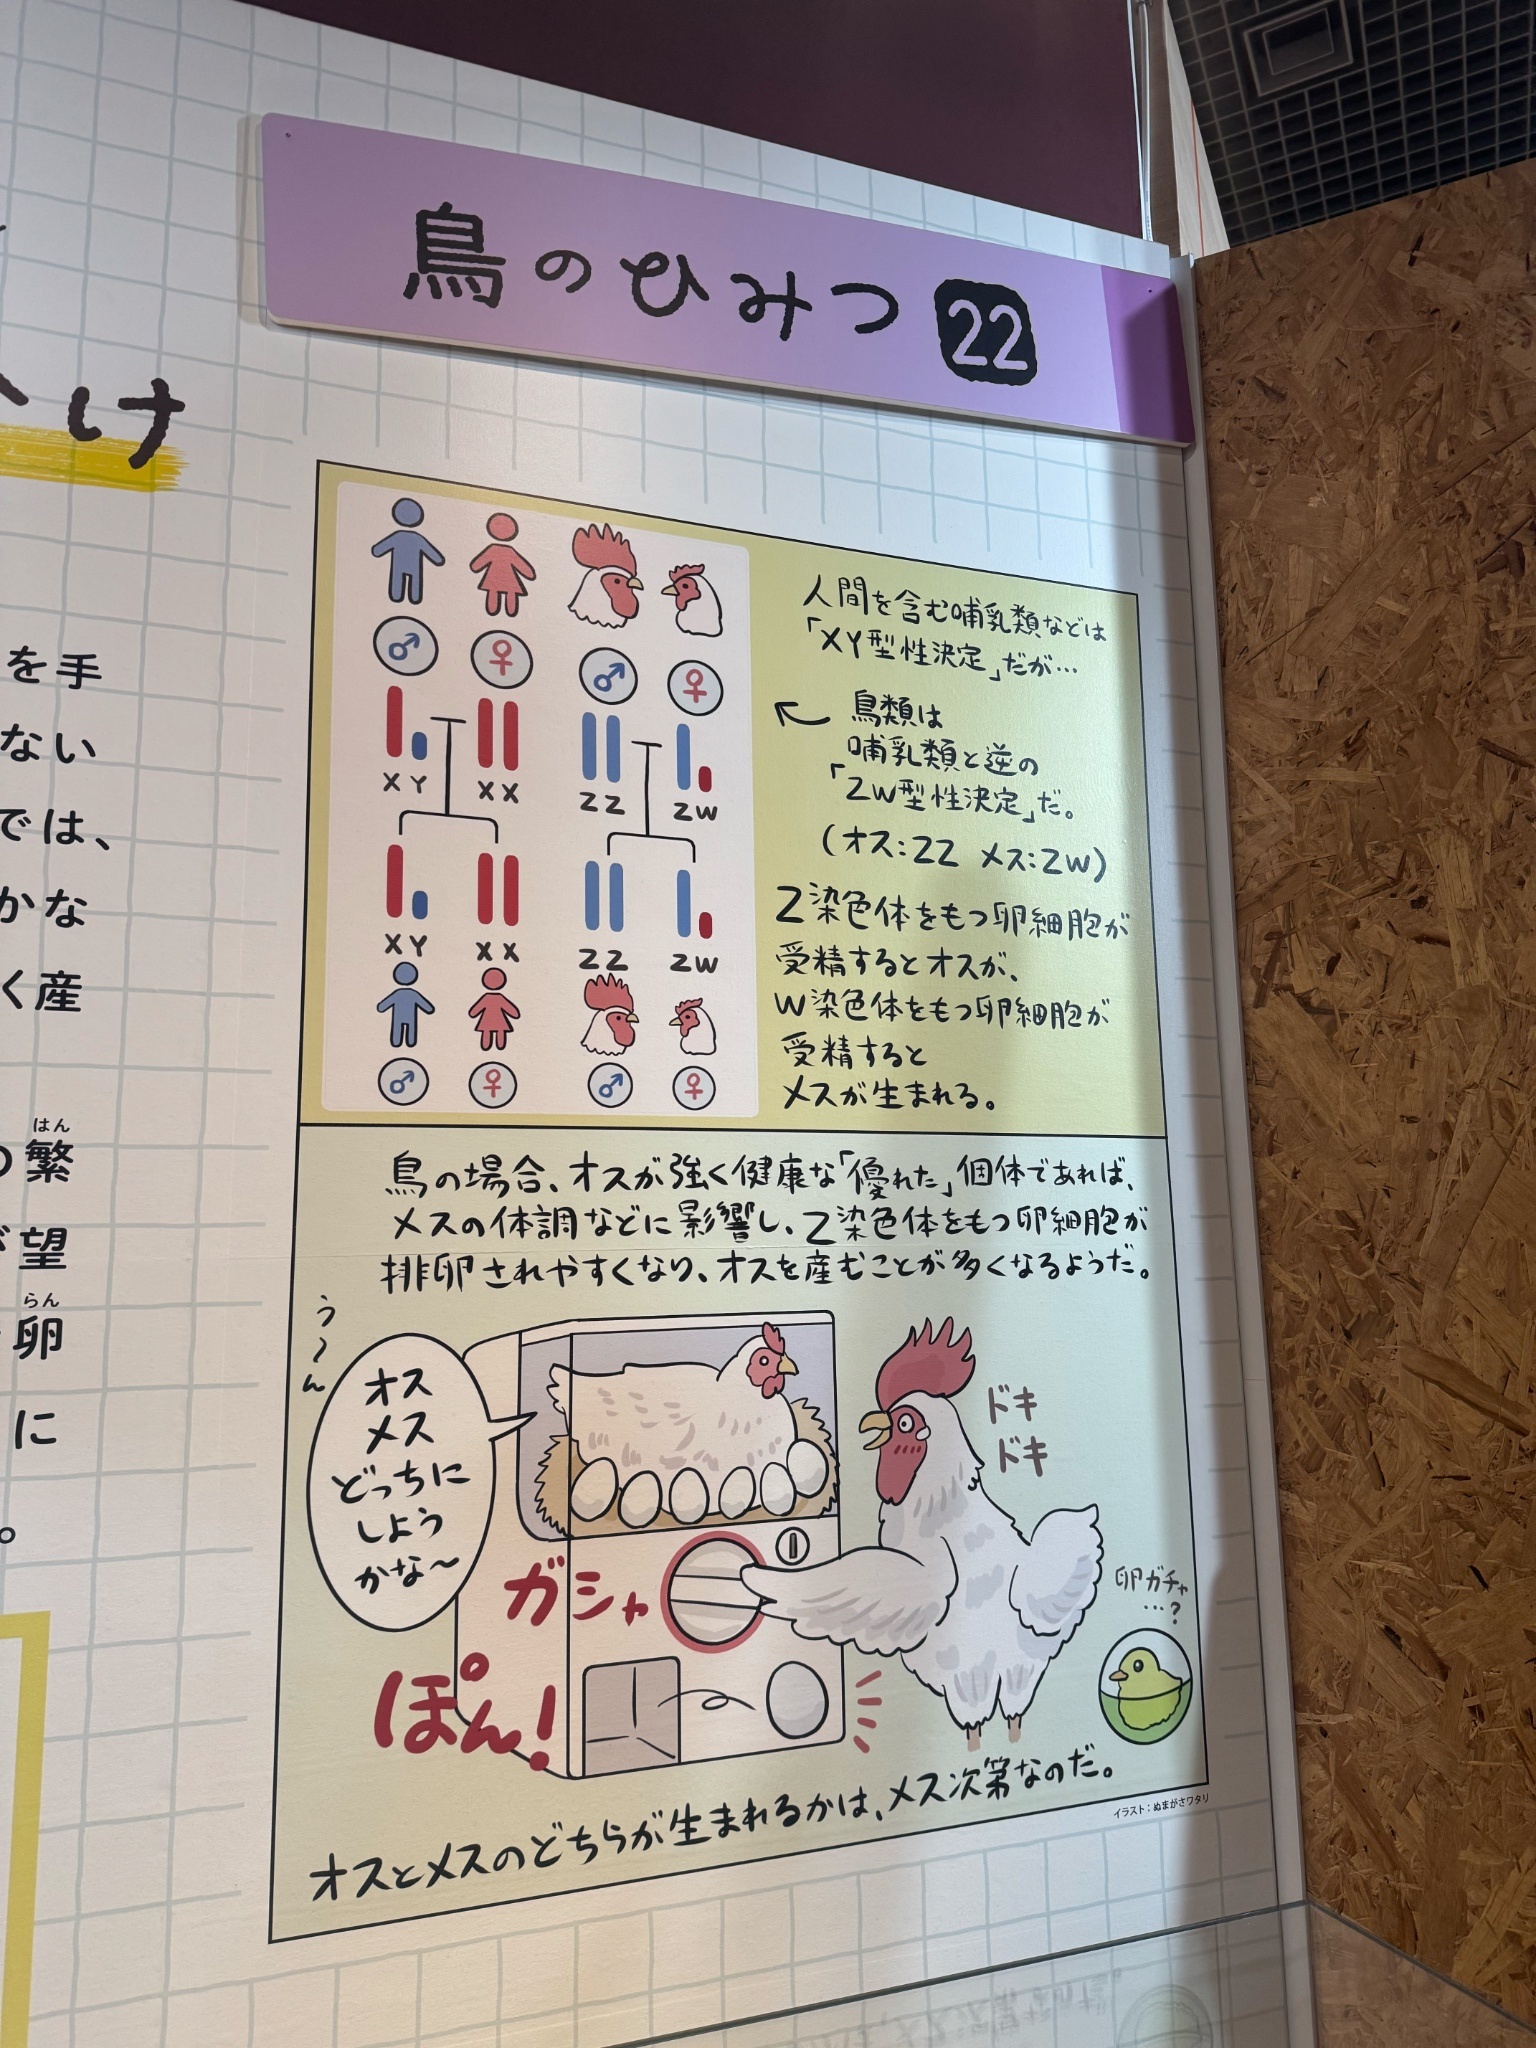 鳥のひみつ 22
け
を手
ない
では、
かな
く産
はん
繁
望
らん
卵
に
。
人間を含む哺乳類などは
「XY型性決定」だが…
鳥類は
哺乳類と逆の
「ZW型性決定」だ。
(オス:ZZ メス:ZW)
Z染色体をもつ卵細胞が
受精するとオスが、
W染色体をもつ卵細胞が
受精すると
メスが生まれる。
♂ ♀ ♂ ♀
XY XX ZZ ZW
XY XX ZZ ZW
♂ ♀ ♂ ♀
鳥の場合、オスが強く健康な「優れた」個体であれば、
メスの体調などに影響し、Z染色体をもつ卵細胞が
排卵されやすくなり、オスを産むことが多くなるようだ。
う〜ん
オス
メス
どっちに
しよう
かな〜
ドキ
ドキ
ガシャ
ぽん!
卵ガチャ
…?
オスとメスのどちらが生まれるかは、メス次第なのだ。
イラスト:ぬまがさワタリ